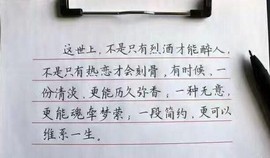 这世上，不是只有烈酒才能醉人，
不是只有热恋才会刻骨，有时候，一
份清淡，更能历久弥香，一种无意，
更能魂牵梦萦；一段简约，更可以
维系一生。